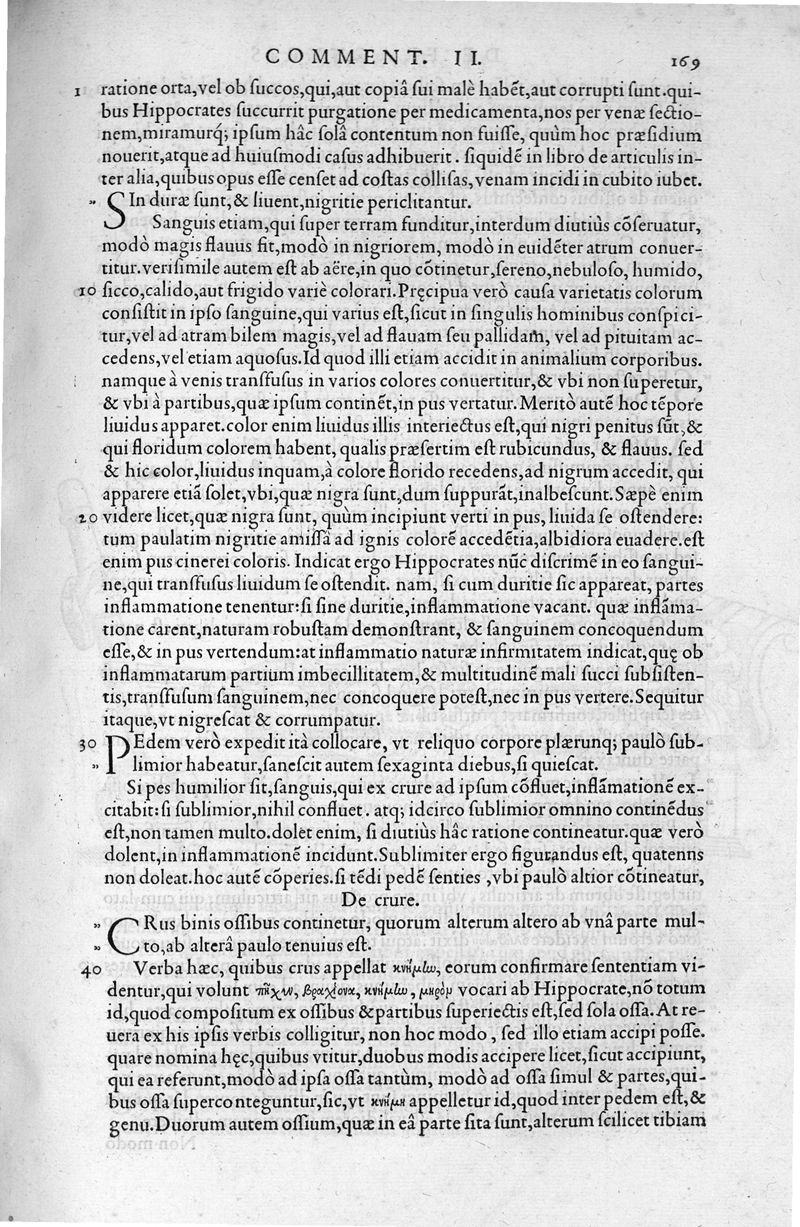 COMMENT. II. 169
1 ratione orta,vel ob ſuccos,qui,aut copiâ ſui malè habẽt,aut corrupti ſunt.qui-
bus Hippocrates ſuccurrit purgatione per medicamenta,nos per venæ ſectio-
nem,miramurq́; ipſum hâc ſolâ contentum non fuiſſe, quùm hoc præſidium
nouerit,atque ad huiuſmodi caſus adhibuerit . ſiquidẽ in libro de articulis in-
ter alia,quibus opus eſſe cenſet ad coſtas colliſas,venam incidi in cubito iubet.
" SIn duræ ſunt,& liuent,nigritie periclitantur.
Sanguis etiam,qui ſuper terram funditur,interdum diutiùs cõſeruatur,
modò magis flauus fit,modò in nigriorem, modò in euidẽter atrum conuer-
titur.veriſimile autem eſt ab aëre,in quo cõtinetur,ſereno,nebuloſo, humido,
10 ſicco,calido,aut frigido variè colorari.Pręcipua verò cauſa varietatis colorum
conſiſtit in ipſo ſanguine,qui varius eſt,ſicut in ſingulis hominibus conſpici-
tur,vel ad atram bilem magis,vel ad flauam ſeu pallidam, vel ad pituitam ac-
cedens,vel etiam aquoſus.Id quod illi etiam accidit in animalium corporibus.
namque à venis transfuſus in varios colores conuertitur,& vbi non ſuperetur,
& vbi à partibus,quæ ipſum continẽt,in pus vertatur.Meritò autẽ hoc tẽpore
liuidus apparet.color enim liuidus illis interiectus eſt,qui nigri penitus sũt,&
qui floridum colorem habent, qualis præſertim eſt rubicundus, & flauus. ſed
& hic color,liuidus inquam,à colore florido recedens,ad nigrum accedit, qui
apparere etiã ſolet,vbi,quæ nigra ſunt,dum ſuppurãt,inalbeſcunt.Sæpè enim
20 videre licet,quæ nigra ſunt, quùm incipiunt verti in pus, liuida ſe oſtendere:
tum paulatim nigritie amiſſâ ad ignis colorẽ accedẽtia,albidiora euadere.eſt
enim pus cinerei coloris. Indicat ergo Hippocrates nũc diſcrimẽ in eo ſangui-
ne,qui transfuſus liuidum ſe oſtendit. nam, ſi cum duritie ſic appareat, partes
inflammatione tenentur:ſi ſine duritie,inflammatione vacant. quæ inflãma-
tione carent,naturam robuſtam demonſtrant, & ſanguinem concoquendum
eſſe,& in pus vertendum:at inflammatio naturæ infirmitatem indicat,quę ob
inflammatarum partium imbecillitatem,& multitudinẽ mali ſucci ſubſiſten-
tis,transfuſum ſanguinem,nec concoquere poteſt,nec in pus vertere.Sequitur
itaque,vt nigreſcat & corrumpatur.
30 PEdem verò expedit ità collocare, vt reliquo corpore plærunq; paulò ſub-
" limior habeatur,ſaneſcit autem ſexaginta diebus,ſi quieſcat.
Si pes humilior ſit,ſanguis,qui ex crure ad ipſum cõfluet,inflãmationẽ ex-
citabit:ſi ſublimior,nihil confluet . atq; idcirco ſublimior omnino continẽdus
eſt,non tamen multo.dolet enim, ſi diutiùs hâc ratione contineatur.quæ verò
dolent,in inflammationẽ incidunt.Sublimiter ergo figurandus eſt, quatenns
non doleat.hoc autẽ cõperies.ſi tẽdi pedẽ ſenties ,vbi paulò altior cõtineatur,
De crure.
" CRus binis oſſibus continetur, quorum alterum altero ab vnâ parte mul-
" to,ab alterâ paulo tenuius eſt.
40 Verba hæc, quibus crus appellat κνήμην, eorum confirmare ſententiam vi-
dentur,qui volunt πῆχυν, βραχίονα, κνήμην, μηρὸν vocari ab Hippocrate,nõ totum
id,quod compoſitum ex oſſibus & partibus ſuperiectis eſt,ſed ſola oſſa. At re-
uera ex his ipſis verbis colligitur, non hoc modo , ſed illo etiam accipi poſſe.
quare nomina hęc,quibus vtitur,duobus modis accipere licet,ſicut accipiunt,
qui ea referunt,modò ad ipſa oſſa tantùm, modò ad oſſa ſimul & partes,qui-
bus oſſa ſuperconteguntur,ſic,vt κνήμη appelletur id,quod inter pedem eſt,&
genu.Duorum autem oſſium,quæ in eâ parte ſita ſunt,alterum ſcilicet tibiam